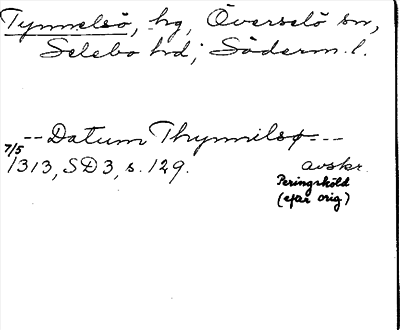 Tynnelsö, hg, Överselö sn,
Selebo hd, Söderm. l.
-- Datum Thynnilsø ---
7/5
1313, SD3, s. 129. avskr.
Peringsköld
(efter orig)